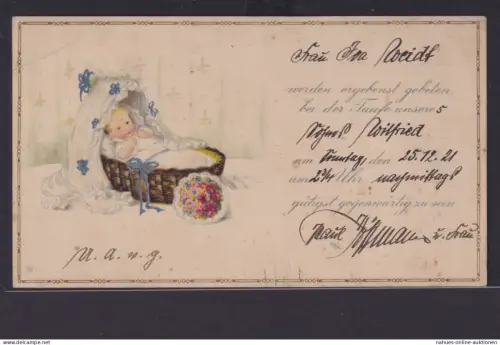 Frau Iva Weidt
werden ergebenst gebeten
bei der Taufe unseres
Sohnes Wilfried
am Sonntag, den 25.12.21
um 2¾ Uhr nachmittags
gütigst gegenwärtig zu sein
Paul u. Frau
U. A. w. g.
nahues-online-auktionen.com